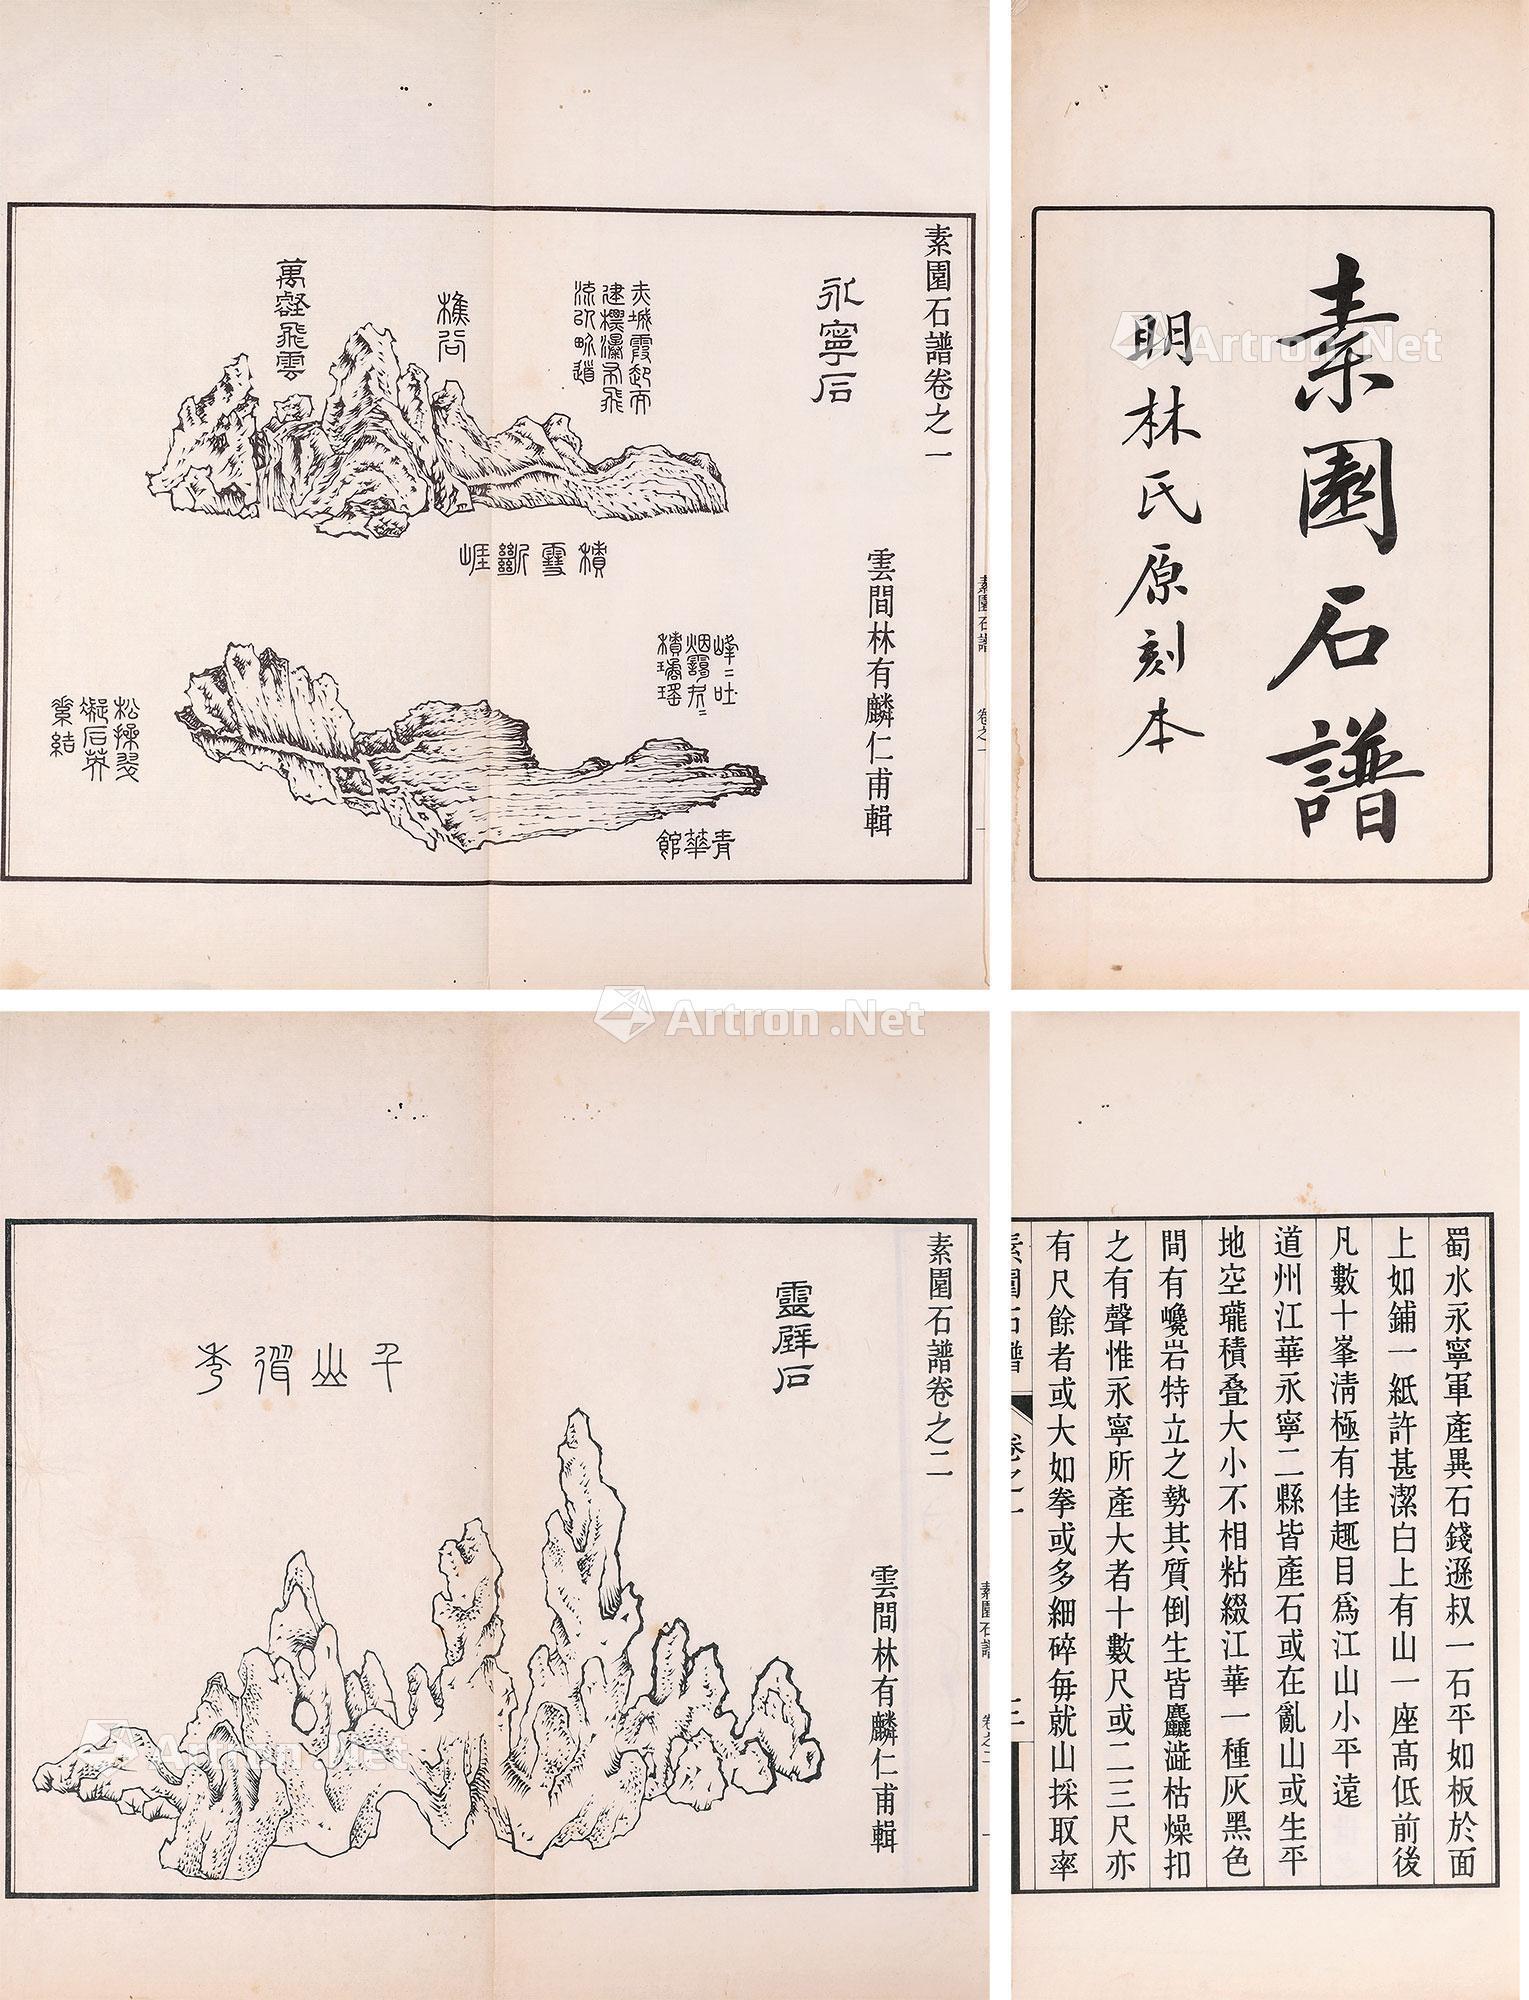 素園石譜
明林氏原刻本
素園石譜卷之一
雲間林有麟仁甫輯
永寧石
赤城霞起而
建標瀑布飛
流以界道
樵谷
萬壑飛雲
積雪斷崕
峰〻吐
烟靄
積瑤
青華館
松操翠
凝石英
素結
素園石譜
卷之一
蜀水永寧軍產異石錢遜叔一石平如板於面
上如鋪一紙許甚潔白上有山一座高低前後
凡數十峯淸極有佳趣目爲江山小平遠
道州江華永寧二縣皆產石或在亂山或生平
地空瓏積叠大小不相粘綴江華一種灰黑色
間有巉岩特立之勢其質倒生皆麤澁枯燥扣
之有聲惟永寧所產大者十數尺或二三尺亦
有尺餘者或大如拳或多細碎每就山採取率
素園石譜
卷之一
二
素園石譜卷之二
雲間林有麟仁甫輯
靈壁石
千山
秀
素園石譜
卷之二
一
Artron.Net
Artron.Net
Artron.Net
Artron.Net